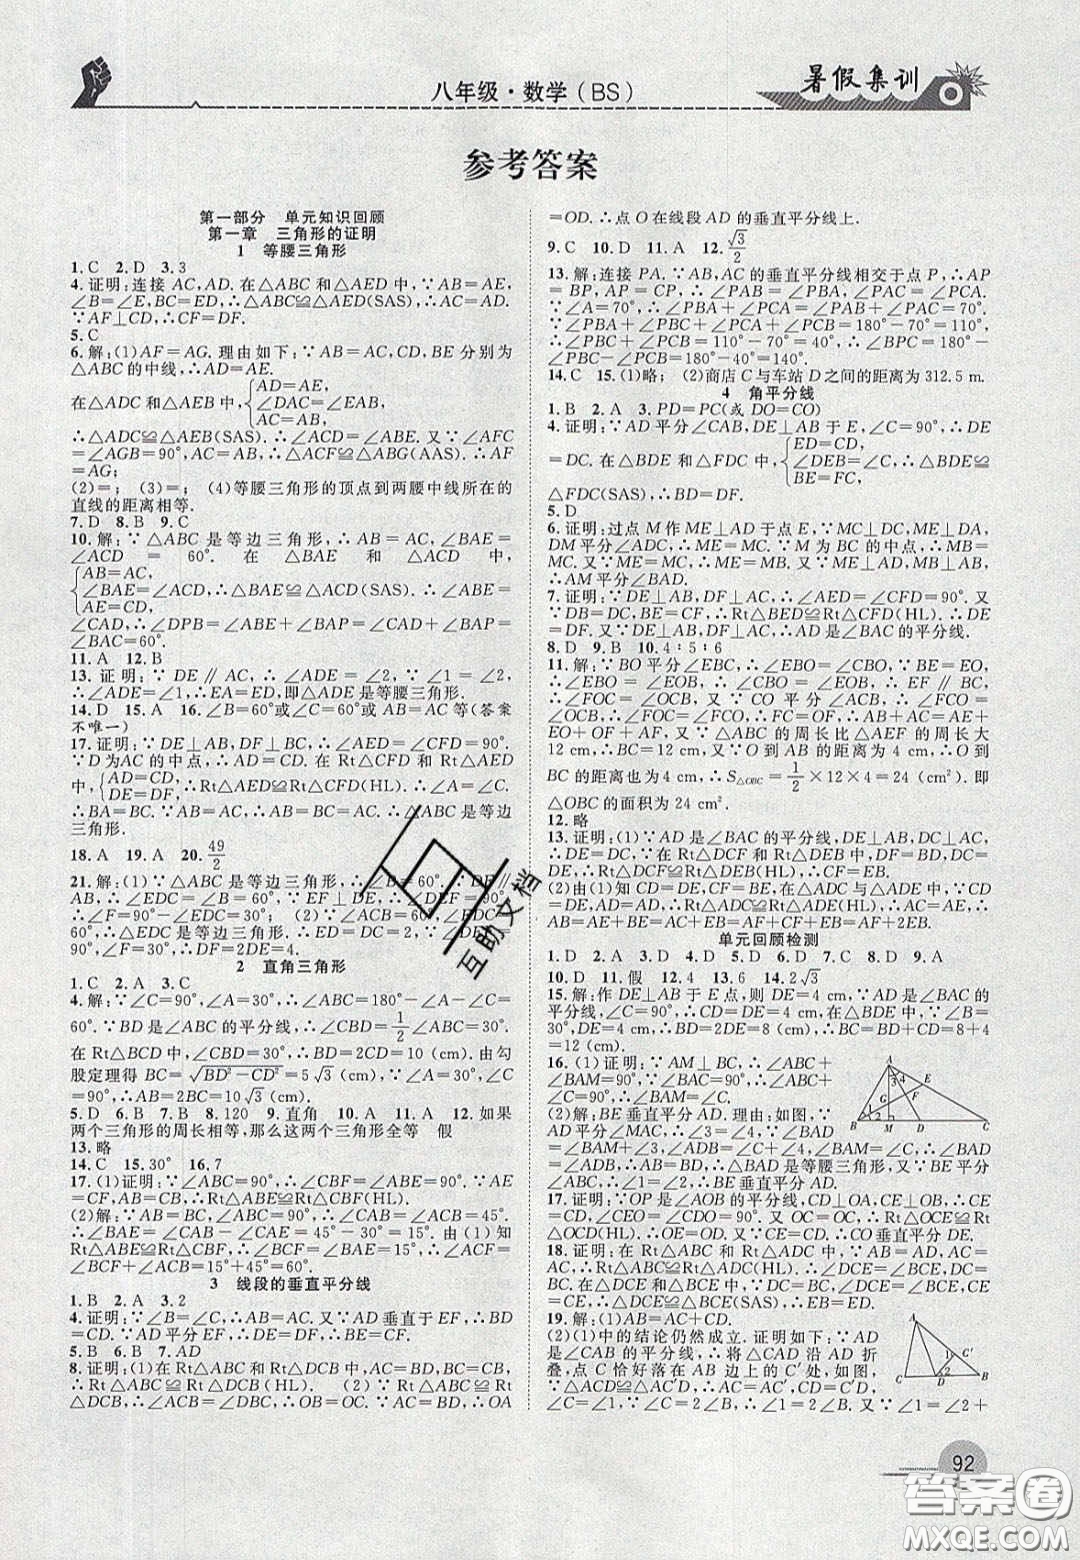 八年级·数学(BS)
暑假集训
参考答案
第一部分 单元知识回顾
第一章 三角形的证明
1 等腰三角形
1.C 2.D 3.3
4.证明:连接AC,AD.在△ABC和△AED中,∵AB=AE,
∠B=∠E,BC=ED,∴△ABC≌△AED(SAS),∴AC=AD.
∵AF⊥CD,∴CF=DF.
5.C
6.解:(1)AF=AG.理由如下:∵AB=AC,CD,BE分别为
△ABC的中线,∴AD=AE.
在△ADC和△AEB中,{AD=AE,
∠DAC=∠EAB,
AC=AB,
∴△ADC≌△AEB(SAS).∴∠ACD=∠ABE.又∵∠AFC
=∠AGB=90°,AC=AB,∴△AFC≌△AGB(AAS).∴AF
=AG;
(2)=; (3)=; (4)等腰三角形的顶点到两腰中线所在的
直线的距离相等.
7.D 8.B 9.C
10.解:∵△ABC是等边三角形,∴AB=AC,∠BAE=
∠ACD = 60°. 在 △BAE 和 △ACD 中,
{AB=AC,
∠BAE=∠ACD,∴△BAE≌△ACD(SAS).∴∠ABE=
AE=CD,
∠CAD,∴∠DPB=∠ABE+∠BAP=∠CAD+∠BAP=
∠BAC=60°.
11.A 12.B
13.证明:∵DE∥AC,∴∠ADE=∠2,∵∠1=∠2,
∴∠ADE=∠1,∴EA=ED,即△ADE是等腰三角形.
14.D 15.A 16.∠B=60°或∠C=60°或AB=AC等(答案
不唯一)
17.证明:∵DE⊥AB,DF⊥BC,∴∠AED=∠CFD=90°.
∵D为AC的中点,∴AD=CD.在Rt△AED和Rt△CFD
中,{AD=CD,
DE=DF,∴Rt△AED≌Rt△CFD(HL).∴∠A=∠C.
∴BA=BC.又∵AB=AC,∴AB=BC=AC.∴△ABC是等边
三角形.
18.A 19.A 20.49/2
21.解:(1)∵△ABC是等边三角形,∴∠B=60°.∵DE∥
AB,∴∠EDC=∠B=60°.∵EF⊥DE,∴∠DEF=90°.
∴∠F=90°-∠EDC=30°; (2)∵∠ACB=60°,∠EDC=
60°,∴△EDC是等边三角形.∴ED=DC=2.∵∠DEF=
90°,∠F=30°,∴DF=2DE=4.
2 直角三角形
1.C 2.A 3.C
4.解:∵∠C=90°,∠A=30°,∴∠ABC=180°-∠A-∠C=
60°.∵BD是∠ABC的平分线,∴∠CBD=1/2∠ABC=30°.
在Rt△BCD中,∠CBD=30°,∴BD=2CD=10(cm).由勾
股定理得BC=√(BD²-CD²)=5√3(cm).∵∠A=30°,∠C
=90°,∴AB=2BC=10√3(cm).
5.D 6.B 7.B 8.120 9.直角 10.A 11.A 12.如果
两个三角形的周长相等,那么这两个三角形全等 假
13.略
14.C 15.30° 16.7
17.(1)证明:∵∠ABC=90°,∴∠CBF=∠ABE=90°.∵AE
=CF,AB=BC,∴Rt△ABE≌Rt△CBF(HL).
(2)解:∵AB=BC,∠ABC=90°,∴∠CAB=∠ACB=45°.
∴∠BAE=∠CAB-∠CAE=45°-30°=15°.由(1)知
Rt△ABE≌Rt△CBF,∴∠BCF=∠BAE=15°,∴∠ACF=
∠BCF+∠ACB=15°+45°=60°.
3 线段的垂直平分线
1.B 2.A 3.2
4.证明:∵∠B=∠C,∴AB=AC.又∵AD垂直于EF,∴BD
=CD.又∵AD平分EF,∴ED=FD,∴BE=CF.
5.B 6.B 7.AD
8.证明:(1)在Rt△ABC和Rt△DCB中,AC=BD,BC=CB,
∴Rt△ABC≌Rt△DCB(HL). (2)∵Rt△ABC≌Rt
△DCB,∴∠ACB=∠DBC,∴OB=OC.又∵AC=BD,∴OA
=OD.∴点O在线段AD的垂直平分线上.
9.C 10.D 11.A 12.√3/2
13.解:连接PA.∵AB,AC的垂直平分线相交于点P,∴AP
=BP=CP.∴∠PAB=∠PBA,∠PAC=∠PCA.
∵∠A=70°,∴∠PBA+∠PCA=∠PAB+∠PAC=70°.
∵∠PBA+∠PBC+∠PCA+∠PCB=180°-70°=110°,
∴∠PBC+∠PCB=110°-70°=40°,∴∠BPC=180°-
∠PBC-∠PCB=180°-40°=140°.
14.C 15.(1)略; (2)商店C与车站D之间的距离为312.5 m.
4 角平分线
1.B 2.A 3.PD=PC(或DO=CO)
4.证明:∵AD平分∠CAB,DE⊥AB于E,∠C=90°,∴DE
=DC.在△BDE和△FDC中,{ED=CD,
∠DEB=∠C=90°,∴△BDE≌
BE=FC,
△FDC(SAS),∴BD=DF.
5.D
6.证明:过点M作ME⊥AD于点E,∵MC⊥DC,ME⊥DA,
DM平分∠ADC,∴ME=MC.∵M为BC的中点,∴MB=
MC.又∵ME=MC,∴ME=MB.又∵ME⊥AD,MB⊥AB,
∴AM平分∠BAD.
7.证明:∵DE⊥AB,DF⊥AC,∴∠E=∠CFD=90°.又
∵DB=DC,BE=CF,∴Rt△BED≌Rt△CFD(HL),∴DE
=DF.又∵DE⊥AB,DF⊥AC,∴AD是∠BAC的平分线.
8.D 9.B 10.4∶5∶6
11.解:∵BO平分∠EBC,∴∠EBO=∠CBO,∵BE=EO,
∴∠EBO=∠EOB,∴∠CBO=∠EOB,∴EF∥BC,
∴∠FOC=∠OCB,又∵CO平分∠ACB,∴∠FCO=
∠OCB,∴∠FOC=∠FCO,∴OF=CF,∴△AEF的周长=AE+
EO+OF+AF,又∵△ABC的周长比△AEF的周长大
12 cm,∴BC=12(cm),又∵O到AB的距离为4 cm,∴O到
BC的距离也为4 cm,∴S△OBC=1/2×12×4=24(cm²).即
△OBC的面积为24 cm².
12.略
13.证明:(1)∵AD是∠BAC的平分线,DE⊥AB,DC⊥AC,
∴DE=DC,∵在Rt△DCF和Rt△DEB中,DF=BD,
∴Rt△DCF≌Rt△DEB(HL),∴CF=EB.
(2)由(1)知CD=DE,CF=BE,在△ADC与△ADE中,∵CD
=DE,AD=AD,∴Rt△ACD≌Rt△AED,∴AC=AE,
∴AB=AE+BE=AC+EB=AF+CF+EB=AF+2EB.
单元回顾检测
1.D 2.B 3.D 4.D 5.D 6.A 7.C 8.D 9.A
10.D 11.假 12.4 13.6 14.2√3
15.解:作DE⊥AB于E点,则DE=4 cm,∵AD是∠BAC的
平分线,∠C=90°,∴CD=DE=4 cm,在△BDE中,∵∠B=
30°,DE=4 cm,∴BD=2DE=8(cm),∴BC=CD+BD=8+4
=12(cm).
16.(1)证明:∵AM⊥BC,∴∠ABC+
∠BAM=90°,∵∠BAC=90°,∴∠ABC+
∠C=90°,∴∠BAM=∠C.
(2)解:BE垂直平分AD.理由:如图,
∵AD平分∠MAC,∴∠3=∠4,∵∠BAD
=∠BAM+∠3,∠ADB=∠C+∠4,∠BAM=∠C,∴∠BAD
=∠ADB,∴AB=BD,∴△BAD是等腰三角形,又∵BE平分
∠ABC,∴∠1=∠2,∴BE垂直平分AD.
17.证明:∵OP是∠AOB的平分线,CD⊥OA,CE⊥OB,∴CE
=CD,∠CEO=∠CDO=90°.又OC=OC,∴Rt△OCE≌Rt
△OCD(HL).∴OE=OD.又∵CE=CD.∴CO垂直平分DE.
18.证明:在Rt△ABC和Rt△ADC中,∵AB=AD,AC=AC,
∴Rt△ABC≌Rt△ADC(HL),∴∠BAC=∠DAC,BC=
CD,∴∠BCE=∠DCE,在△BCE与△DCE中,∵DC=BC,
∠BCE=∠DCE,CE=CE,∴△BCE≌△DCE(SAS),∴BE=DE.
19.解:(1)AB=AC+CD.
(2)(1)中的结论仍然成立.证明如下:∵AD
是∠CAB的平分线,∴将△CAD沿AD折
叠,点C恰好落在AB边上的C'处,如图.
∵△ACD≌△AC'D,∴AC=AC',CD=C'D,
∠C=∠AC'D,∵∠C=2∠B,∴∠AC'D=2∠B.又∵∠1=∠2+
92
A B C D E F G M 1 2 3 4
A B C D C' 1 2
互助文档
答案圈
MXQE.COM